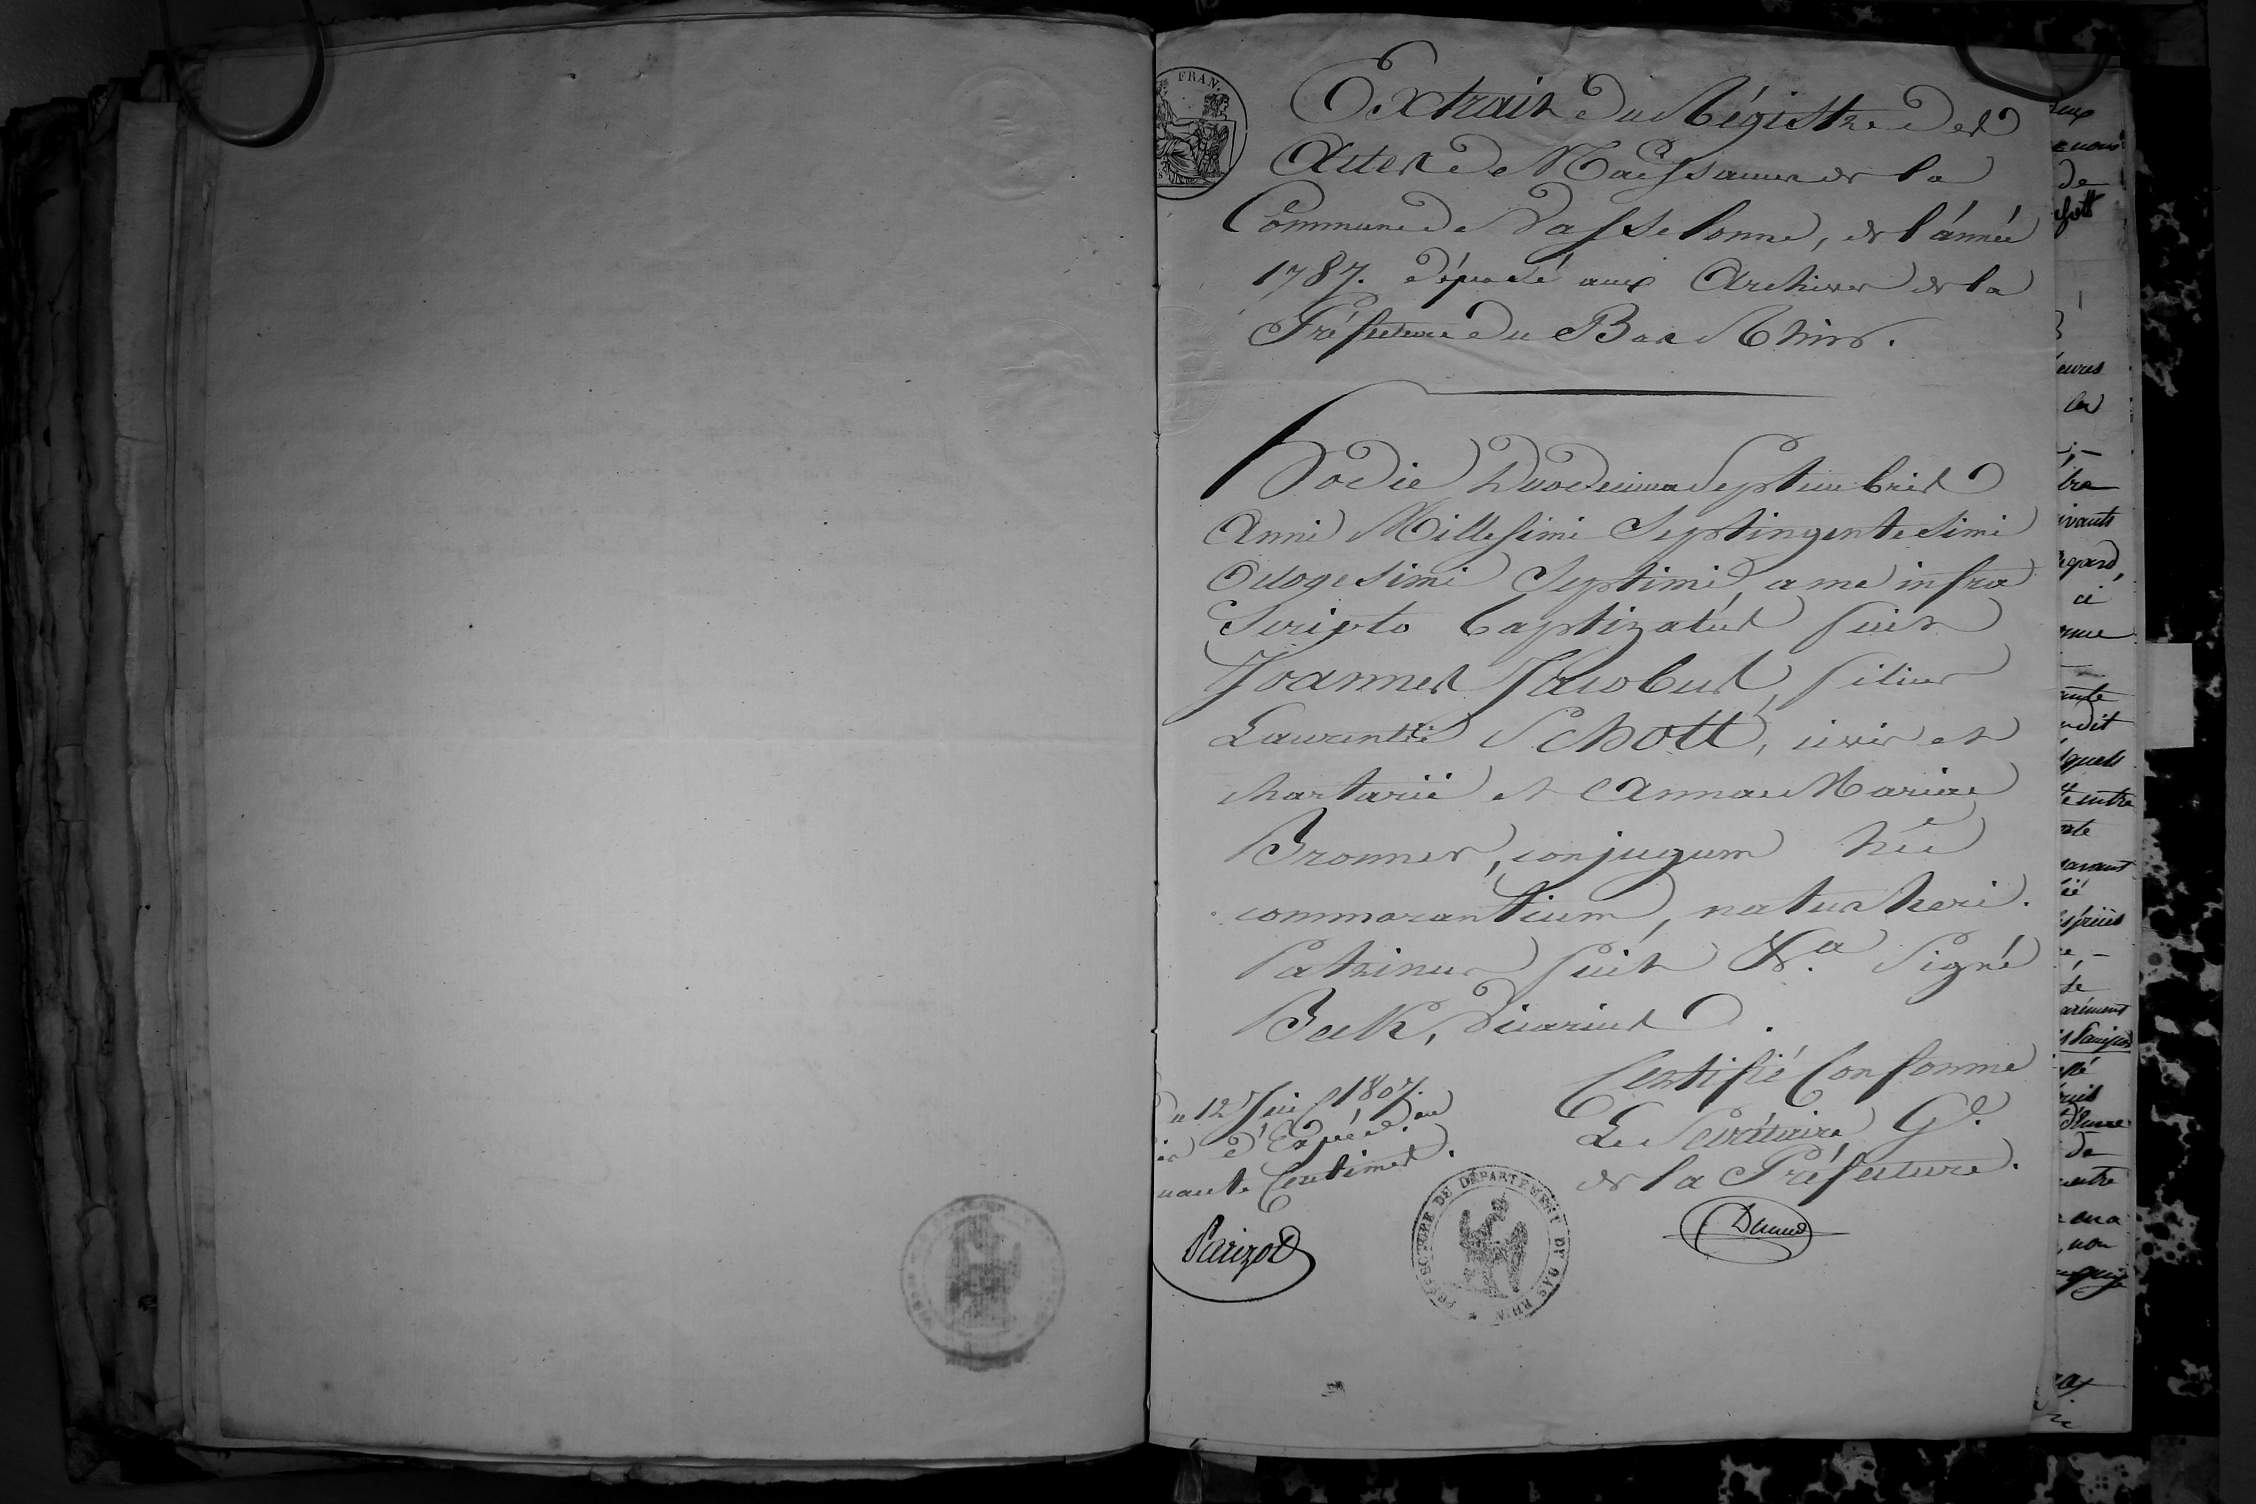 FRAN.
Extrait du Régistre des
Actes de Naissances de la
Commune de Vasselonne, de l'année
1787. déposé aux Archives de la
Préfecture du Bas Rhin.
Hodie Duodecima Septembris
Anni Millesimi Septingentesimi
Octogesimi Septimi, a me infra
Scripto baptizatus fuit
Joannes Jacobus, filius
Laurentii Schott, civis et
chartarii et Annae Mariae
Bronner, conjugum hîc
commorantium, natus heri.
Patrinus fuit &.a Signé
Beck, Vicarius.
Certifié Conforme
Le Secrétaire G.l
de la Préfecture.
Du 12 Juin 1807.
d'Expédition
uante Centimes.
Parizod
PREFECTURE DU DEPARTEMENT DU BAS RHIN
eux
de
eures
les
ivants
egard,
ci
dit
quels
entre
avant
de
arement
de
entre
non